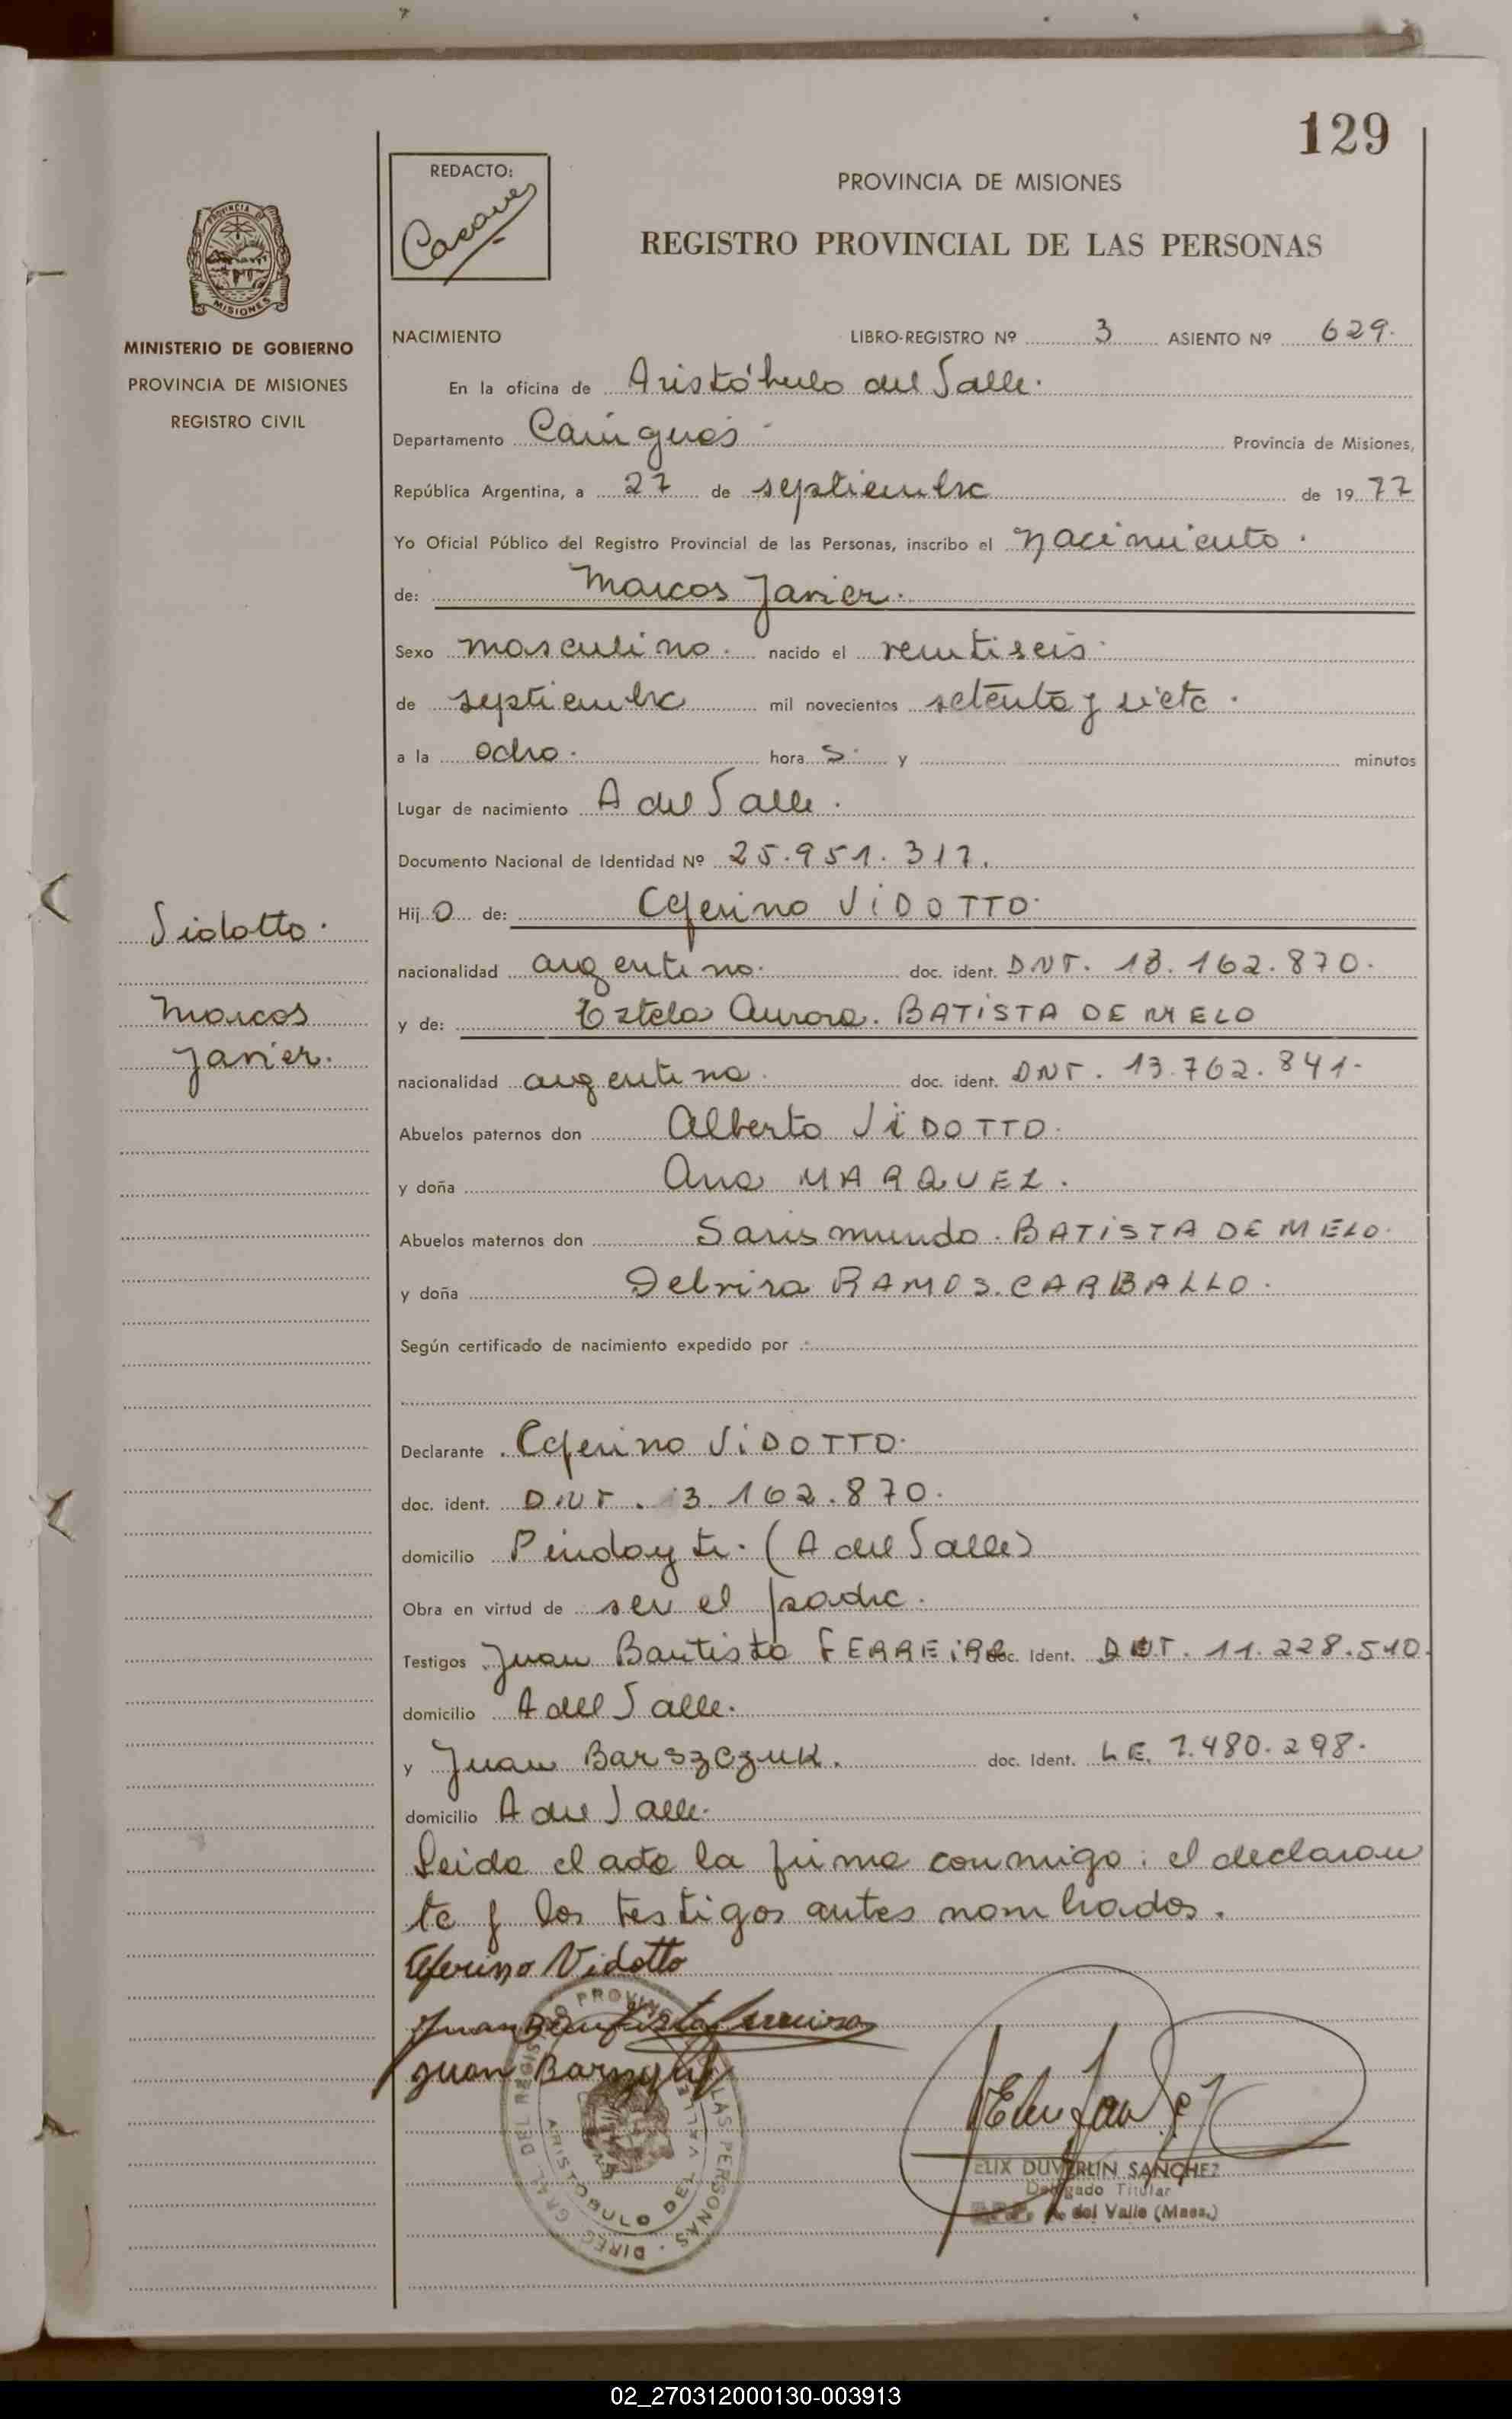 129
REDACTO:
PROVINCIA DE MISIONES
REGISTRO PROVINCIAL DE LAS PERSONAS
PROVINCIA DE
MISIONES
MINISTERIO DE GOBIERNO
PROVINCIA DE MISIONES
REGISTRO CIVIL
NACIMIENTO LIBRO-REGISTRO Nº 3 ASIENTO Nº 629.
En la oficina de Aristóbulo del Valle.
Departamento Cainguás Provincia de Misiones,
República Argentina, a 27 de septiembre de 1977
Yo Oficial Público del Registro Provincial de las Personas, inscribo el nacimiento.
de: Marcos Javier.
Sexo masculino. nacido el veintiseis
de septiembre mil novecientos setenta y siete.
a la ocho. hora s. y minutos
Lugar de nacimiento A del Valle.
Documento Nacional de Identidad Nº 25.951.317.
Vidotto.
Marcos
Javier.
Hij o de: Ceferino ViDOTTO.
nacionalidad argentino. doc. ident. DNI. 13.162.870.
y de: Estela Aurora. BATiSTA DE MELO
nacionalidad argentina. doc. ident. DNI. 13.762.841.
Abuelos paternos don Alberto ViDOTTO.
y doña Ana MARQUEZ.
Abuelos maternos don BATiSTA DE MELO.
y doña RAMOS. CARBALLO.
Según certificado de nacimiento expedido por
Declarante Ceferino ViDOTTO.
doc. ident. DNI. 13.162.870.
domicilio Pindayti. (A del Valle)
Obra en virtud de ser el padre.
Testigos Juan Bautista FERREiRA doc. Ident. DNI. 11.228.510.
domicilio A del Valle.
y Juan Barszczuk. doc. Ident. L.E. 7.480.298.
domicilio A del Valle.
Leida el acta la firma conmigo: el declaran
te y los testigos antes nombrados.
Ceferino Vidotto
Juan Bautista Ferreira
Juan
DIREC. GRAL. DEL REGISTRO PROVINCIAL DE LAS PERSONAS
ARISTOBULO DEL VALLE
FELIX DUVERLIN SANCHEZ
Delegado Titular
A. del Valle (Mnes.)
02_270312000130-003913